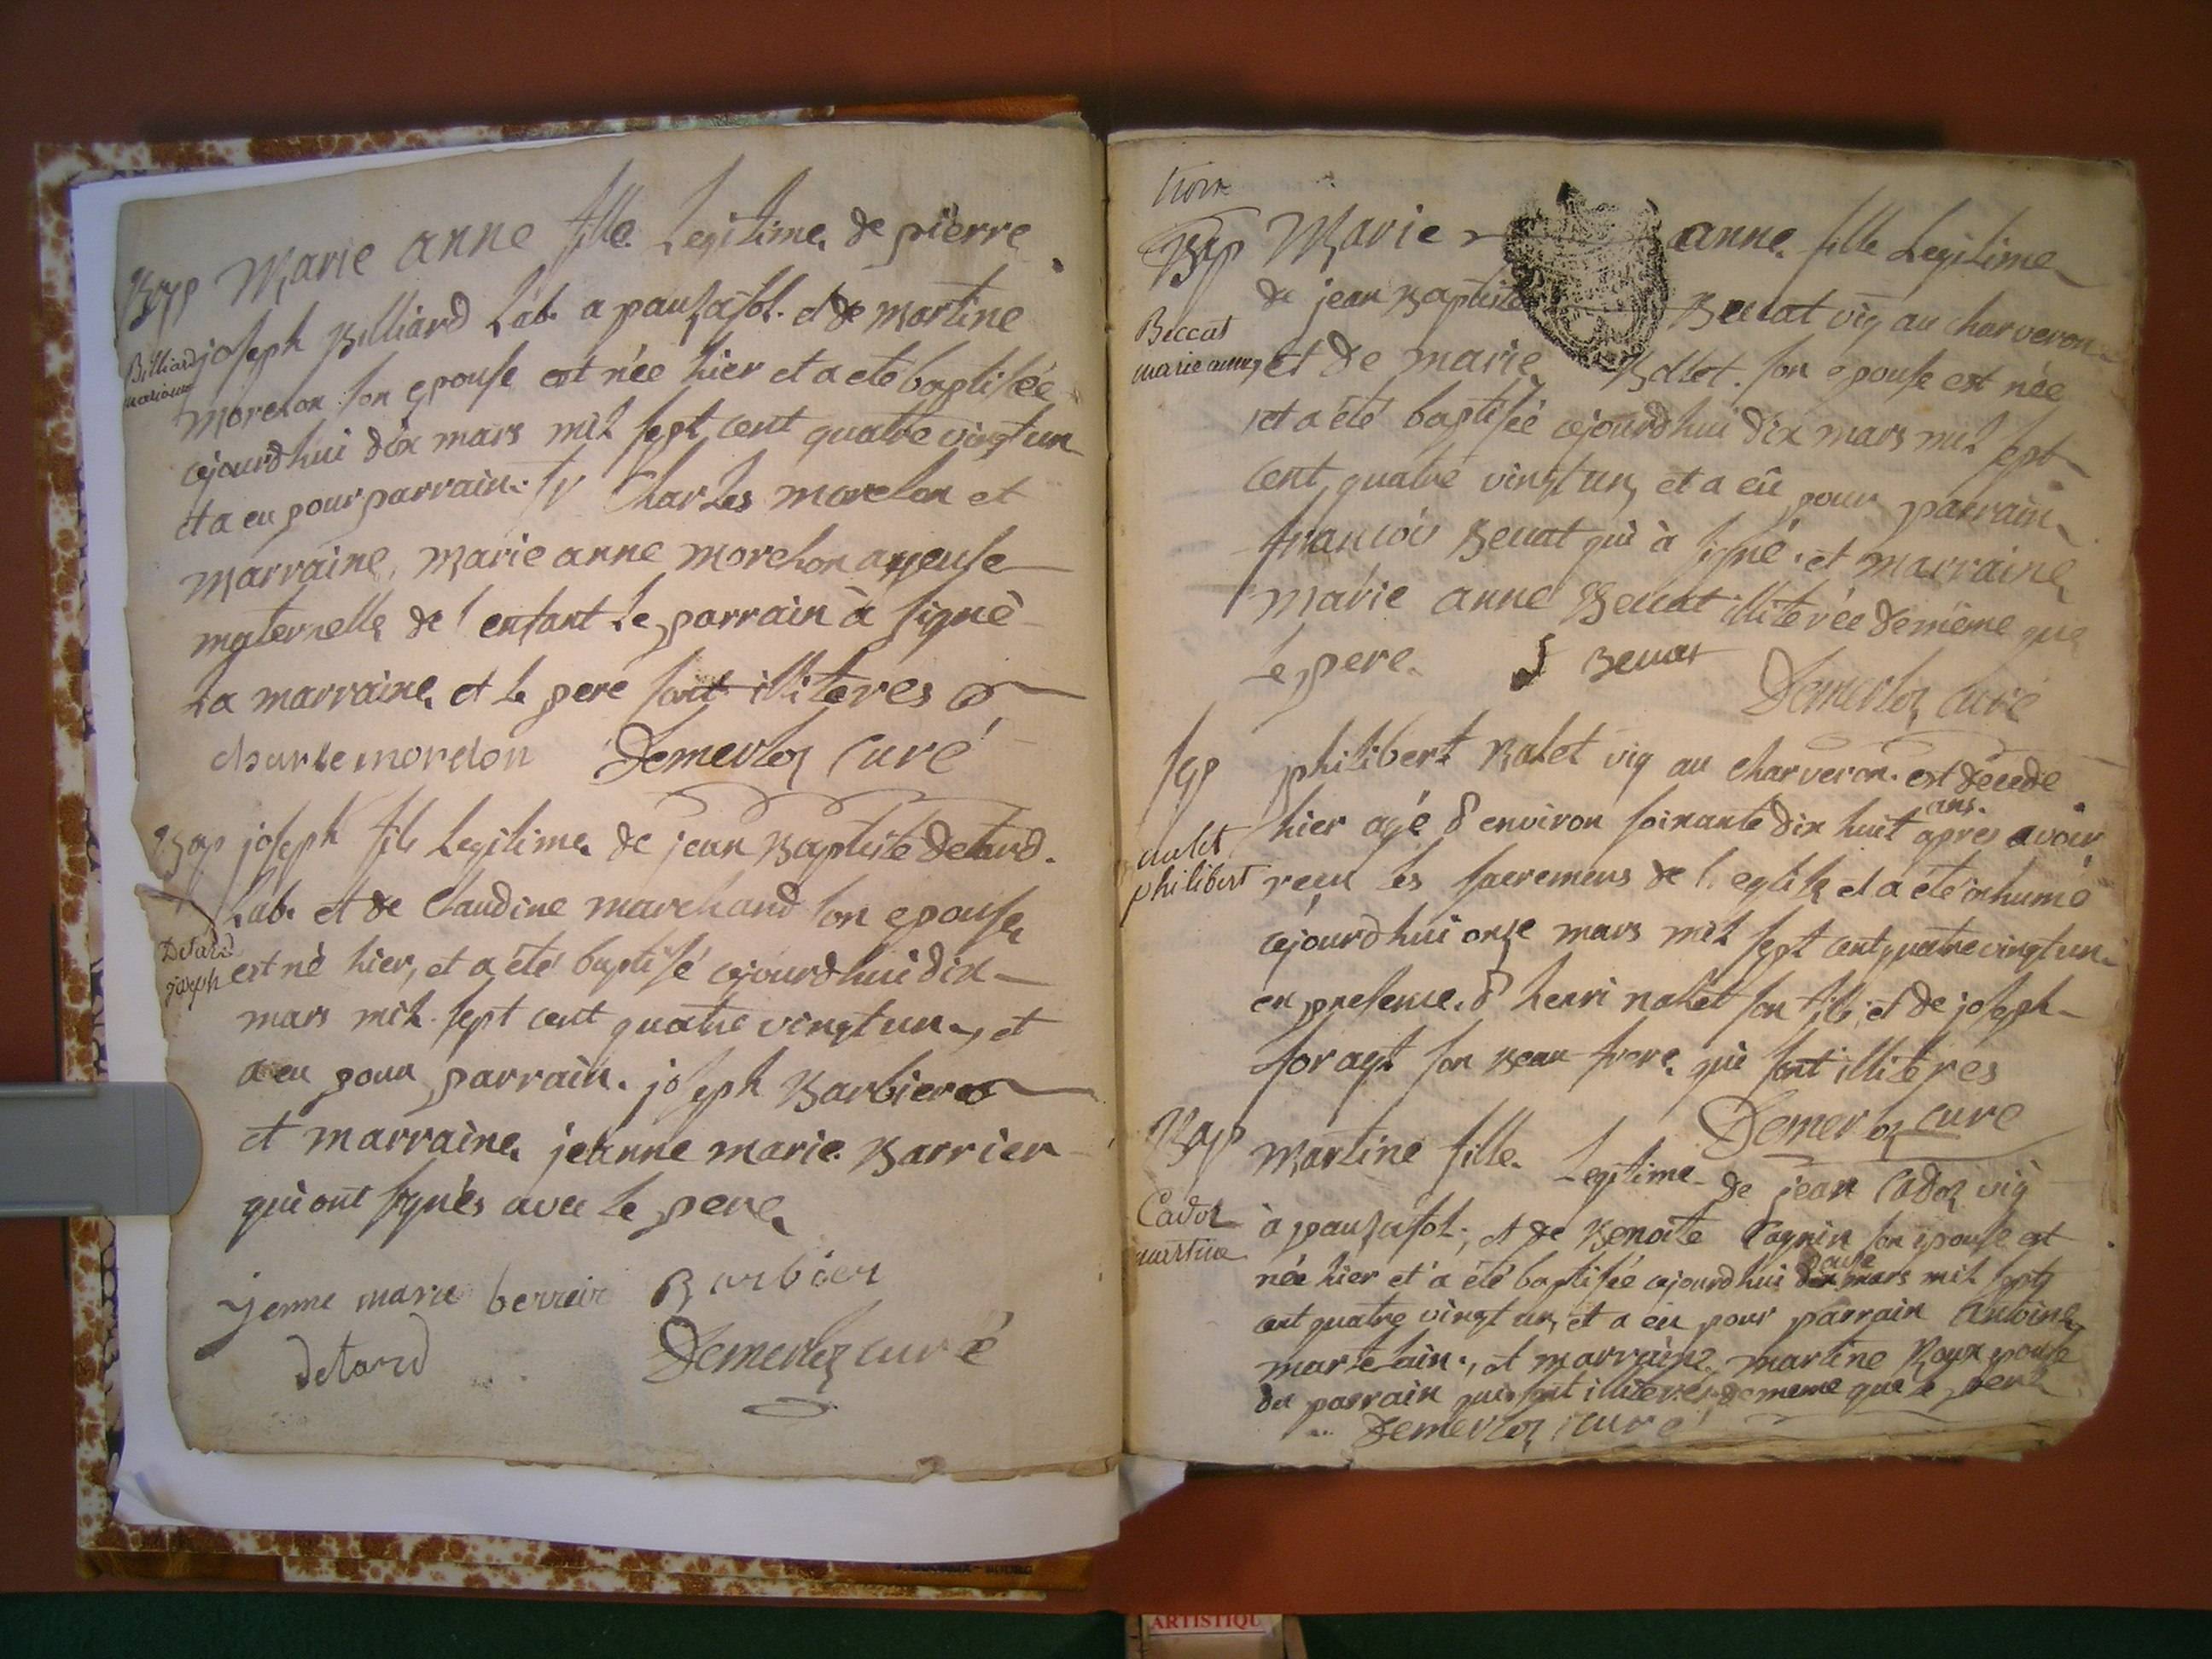 Bap Marie anne fille Legitime de pierre
Billiard joseph Billiard Lab. a paufasol. et de martine
morelon son epouse est née hier et a eté baptisée
cejourdhui dix mars mil sept cent quatre vingt un
et a eu pour parrain. sr Charles morelon et
marraine, Marie anne morelon ayeule
maternelle de l enfant Le parrain à signè
La marraine, et le pere sont illiteres
charle morelon Demerloz Curé
Bap joseph fils Legitime de jean Baptiste detard.
Lab. et de Claudine marchand son epouse
Detard
joseph est nè hier, et a été baptisé cejourdhui dix
mars mil sept cent quatre vingt un, et
a eu pour parrain. joseph Barbier
et marraine jeanne marie Barrier
qui ont signés avec le pere
jenne marie berrier Barbier
detard Demerloz curé
trois
Bap Marie anne. fille Legitime
de jean Baptiste Beccat vig au charveron
Beccat
marie anne et de marie Bollet. son epouse est née
et a été baptisée cejourdhui dix mars mil sept
cent quatre vingt un, et a eû pour parrain
francois Beccat qui à signé. et marraine
marie anne Beccat illiterée de même que
Le pere. f Beccat
Demerloz curé
Sep philibert Nalet vig au charveron. est décedé
hier agé d environ soixante dix huit ans. apres avoir
nalet
philibert reçu les sacremens de l eglise et a été inhumé
cejourdhui onze mars mil sept cent quatre vingt un
en presence. d henri nalet son fils et de joseph
forayt son Beau frere. qui sont illiteres
Demerloz curé
Bap Martine fille Legitime de jean Cadoz vig
Cadoz
martine à paufasol., et de Benoite Pagnin son epouse est
née hier et a été baptisée cejourdhui douze mars mil sept
cent quatre vingt un, et a eu pour parrain Antoine
martelain., et marraine martine Roux epouse
du parrain qui sont illiterés de meme que le pere
Demerloz curé
ARTISTIQU